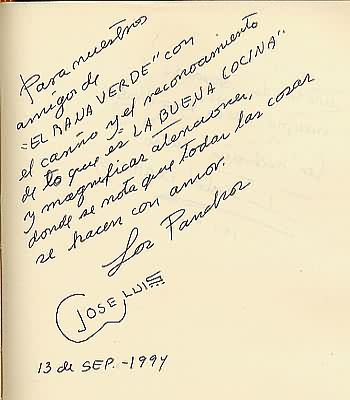 Para nuestros
amigos de
"EL BANA VERDE" con
el cariño y el reconocimiento
de lo que es "LA BUENA COCINA"
y magnificas atenciones,
donde se nota que todas las cosas
se hacen con amor.
Los Panchos
JOSE LUIS
13 de SEP. - 1994